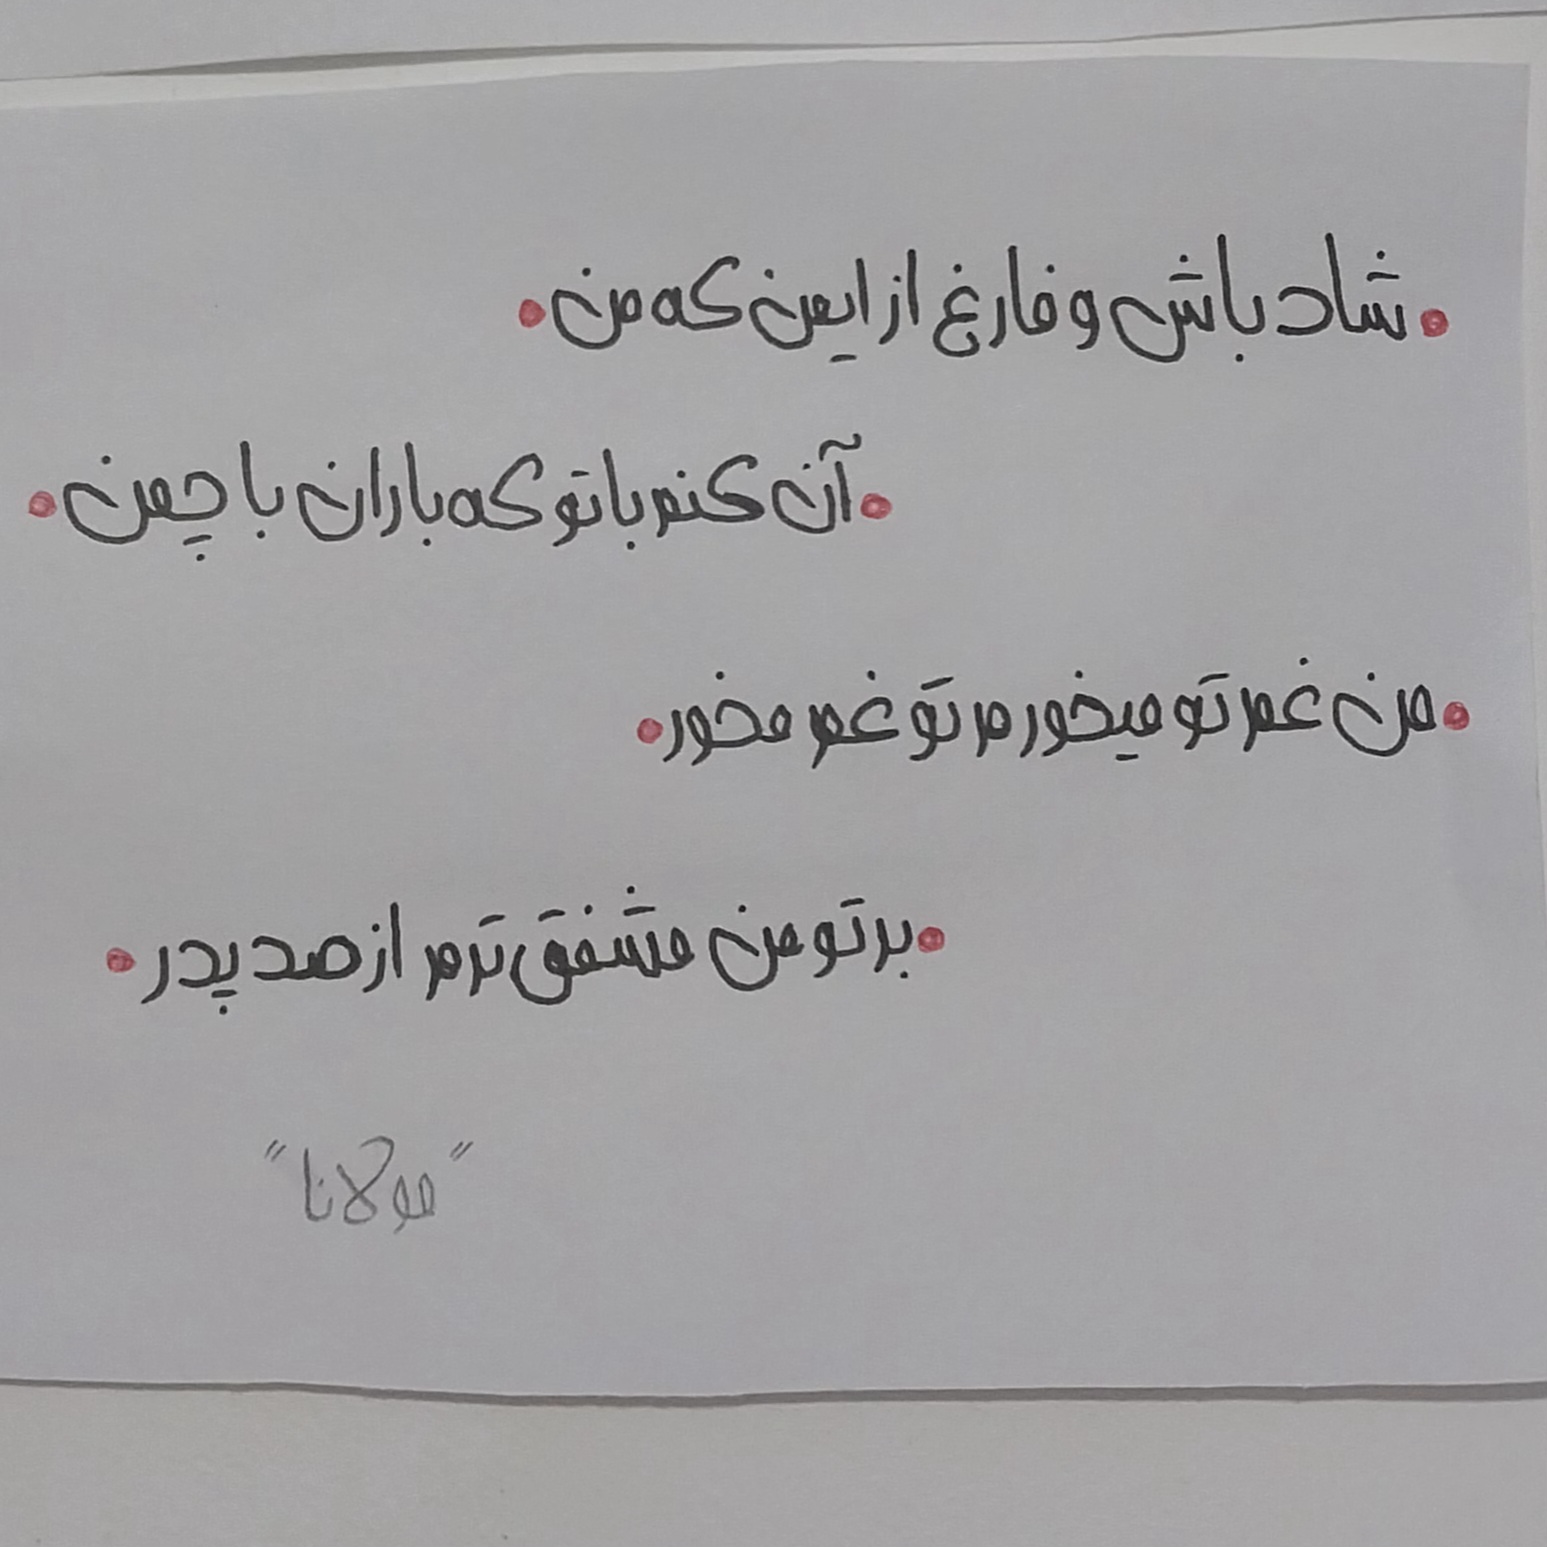 شاد باش و فارغ از ایمن که من
آن کنم با تو که باران با چمن
من غم تو میخورم تو غم مخور
بر تو من مشفق ترم از صد پدر
"مولانا"